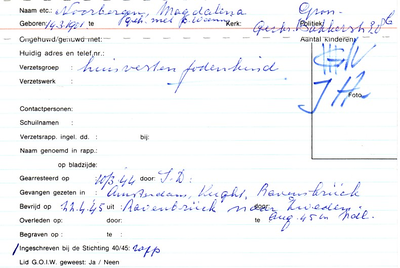 Naam etc. Noorbergen, Magdalina Gron.
Geboren 14.3.1901 te (geh. met P. Kerk: Politiek:
Gestr. Bakkerstr. 20b
Ongehuwd/gehuwd met: Aantal kinderen
Huidig adres en telef.nr.:
Verzetsgroep : huisvesten Jodenkind
Verzetswerk : Foto
JH
Contactpersonen:
Schuilnamen :
Verzetsrapp. ingel. dd. : bij:
Naam genoemd in rapp.:
op bladzijde:
Gearresteerd op : 10/3.44 door: S.D.
Gevangen gezeten in : Amsterdam, Vught, Ravensbrück
Bevrijd op : 22.4.45 uit Ravensbrück naar Zweden door:
Overleden op: door: te Aug. 45 in Ned.
Begraven op : te :
Ingeschreven bij de Stichting 40/45:
Lid G.O.I.W. geweest: Ja / Neen